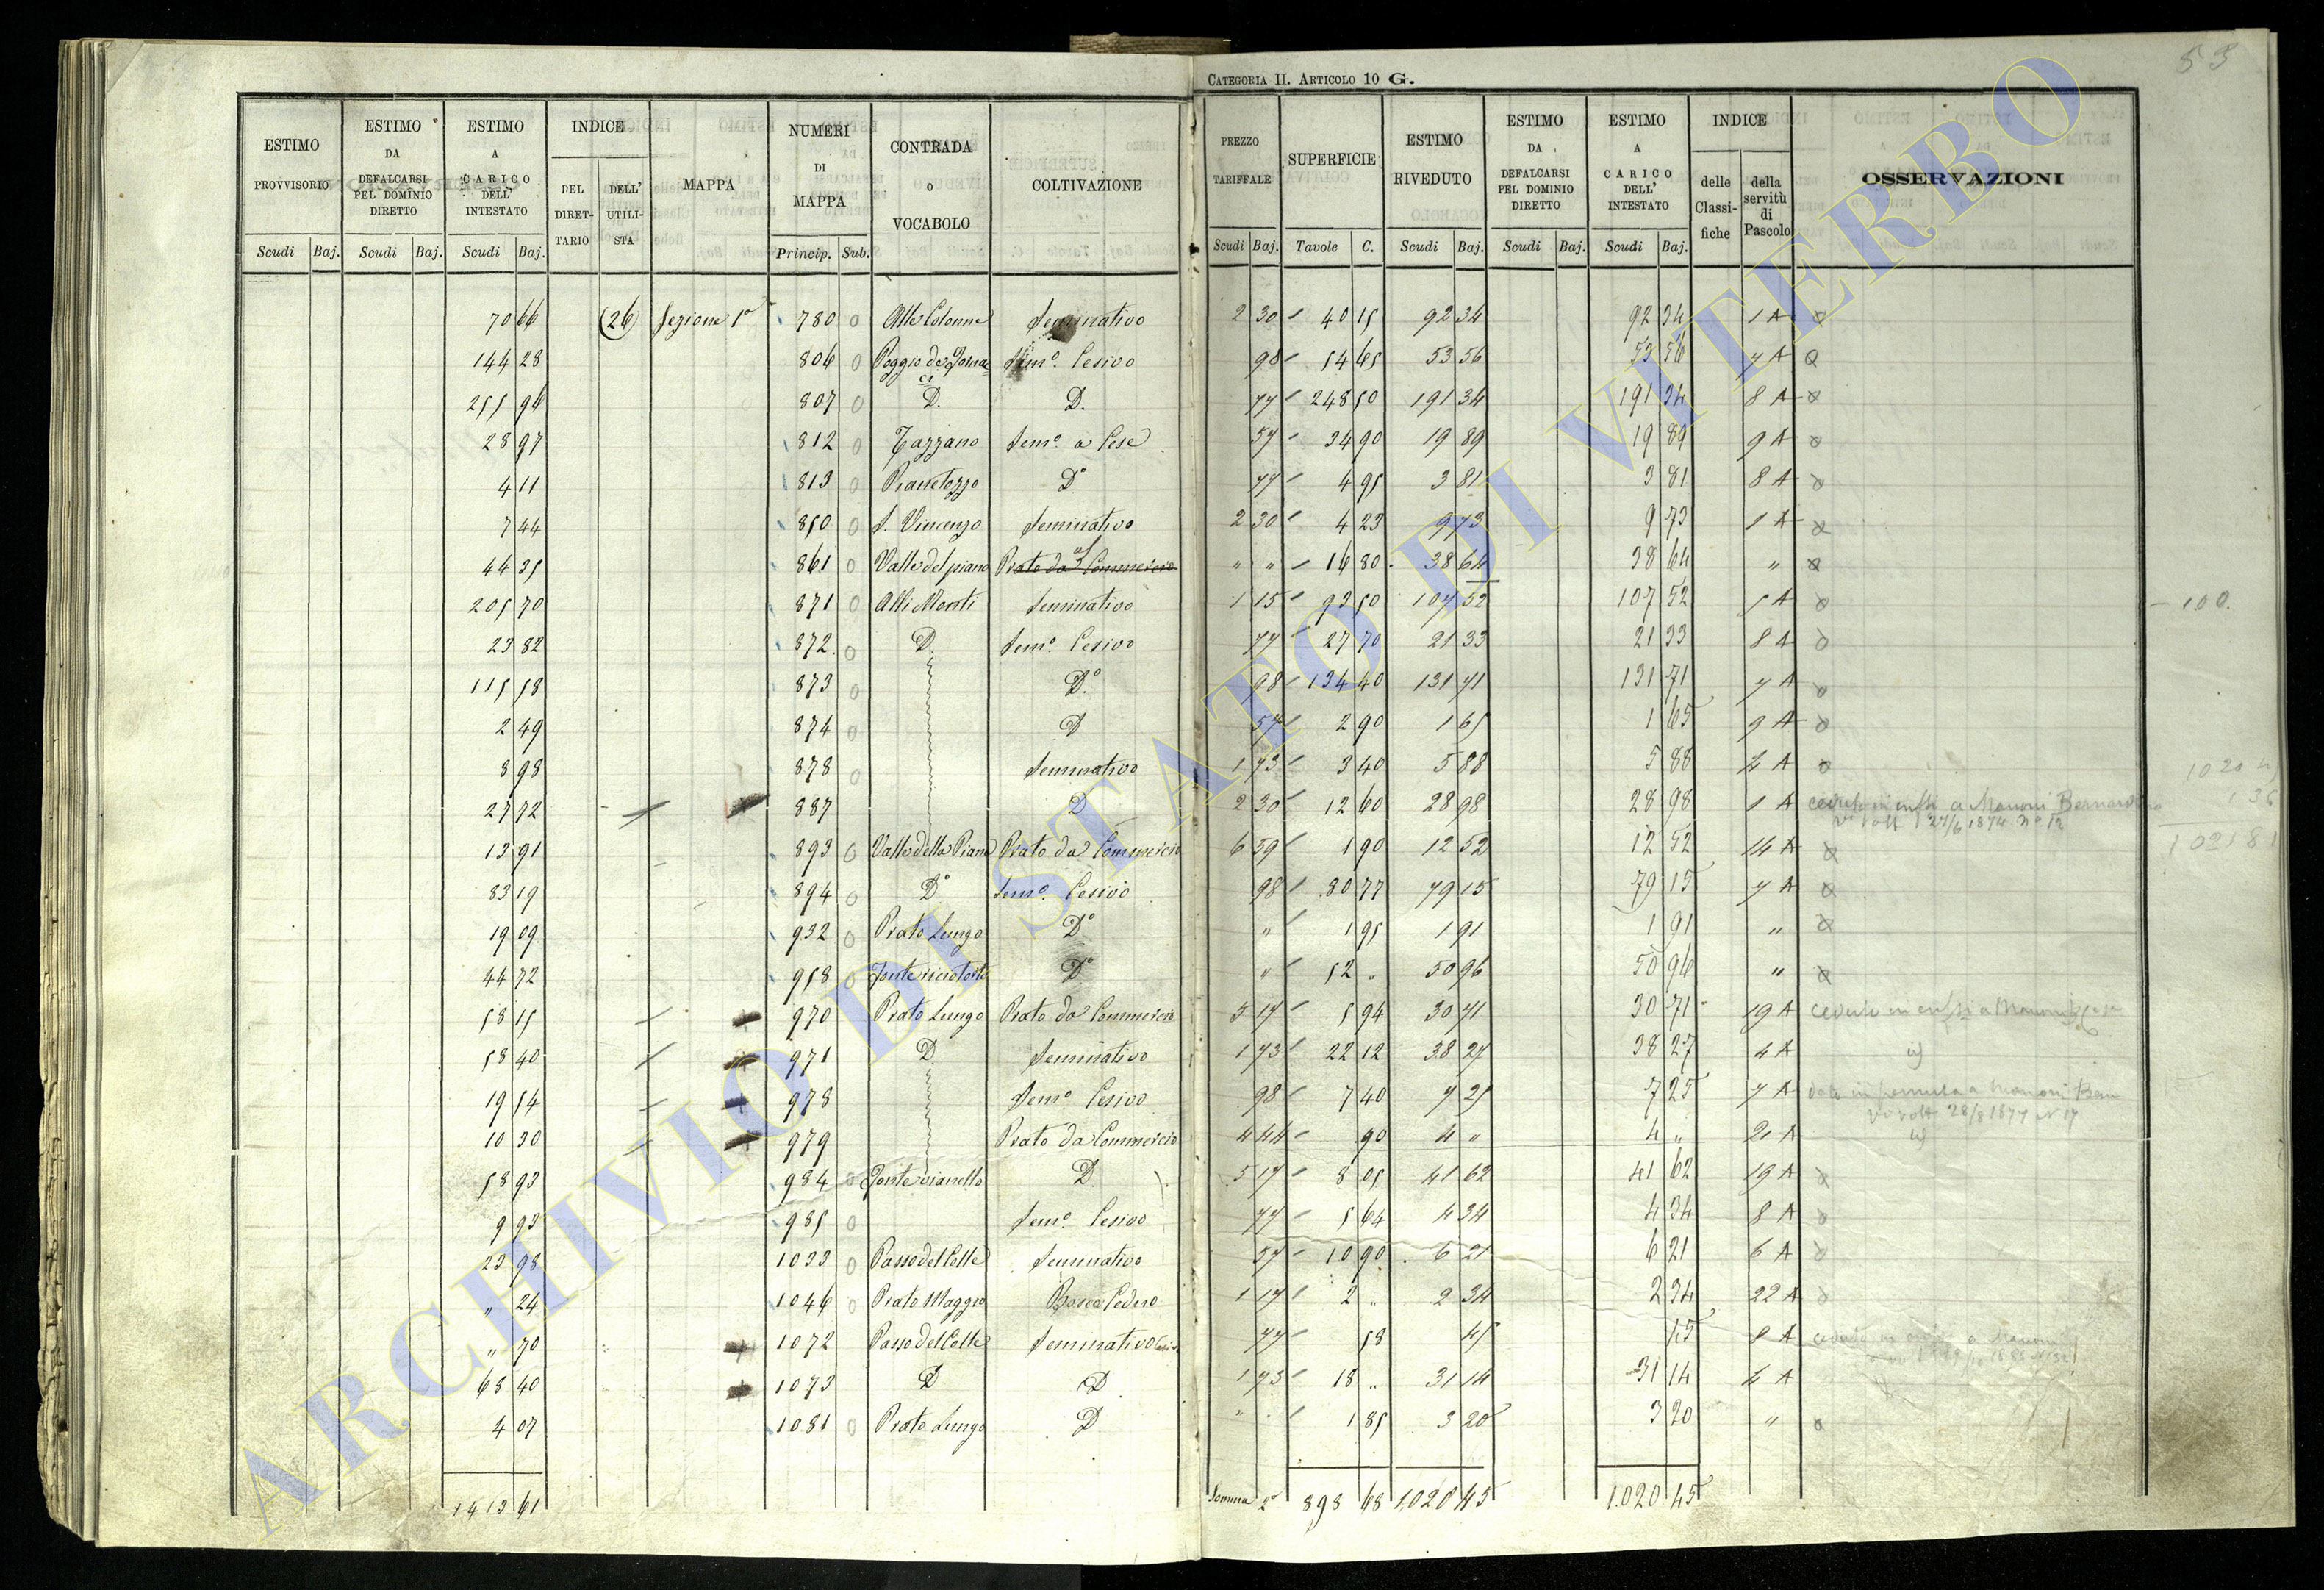 53
CATEGORIA II. ARTICOLO 10 G.
ESTIMO PROVVISORIO Scudi Baj.
ESTIMO DA DEFALCARSI PEL DOMINIO DIRETTO Scudi Baj.
ESTIMO A CARICO DELL' INTESTATO Scudi Baj.
INDICE DEL DIRETTARIO DELL' UTILISTA
MAPPA
NUMERI DI MAPPA Princip. Sub.
CONTRADA O VOCABOLO
COLTIVAZIONE
PREZZO TARIFFALE Scudi Baj.
SUPERFICIE Tavole C.
ESTIMO RIVEDUTO Scudi Baj.
ESTIMO DA DEFALCARSI PEL DOMINIO DIRETTO Scudi Baj.
ESTIMO A CARICO DELL' INTESTATO Scudi Baj.
INDICE delle Classifiche della servitù di Pascolo
OSSERVAZIONI
70 66 (26) Sezione 1a 780 0 Alle Colonne Seminativo 2 30 40 15 92 34 92 34 1 A
144 28 806 0 Poggio de Fornaci Semo. Cesivo 98 54 65 53 56 53 56 7 A
255 96 807 0 D. D. 77 248 50 191 34 191 34 8 A
28 97 812 0 Tazzano Semo a Cese 57 34 90 19 89 19 89 9 A
4 11 813 0 Pianetozzo Do 77 4 95 3 81 3 81 8 A
7 44 850 0 S. Vincenzo Seminativo 2 30 4 23 9 73 9 73 1 A
44 35 861 0 Valle del piano Prato da Commercio " " 16 80 38 64 38 64 "
205 70 871 0 Alli Monti Seminativo 1 15 93 50 107 52 107 52 5 A 100.
23 82 872 0 D. Semo. Cesivo 77 27 70 21 33 21 33 8 A
115 58 873 0 Do 98 134 40 131 71 131 71 7 A
2 49 874 0 D 57 2 90 1 65 1 65 9 A
8 98 878 0 Seminativo 1 73 3 40 5 88 5 88 4 A
27 72 887 D 2 30 12 60 28 98 28 98 1 A ceduto in enfsi a Manoni Bernard
27/6 1874 no 12
13 91 893 0 Valle della Piana Prato da Commercio 6 59 1 90 12 52 12 52 14 A
83 19 894 0 Do Semo. Cesivo 98 80 77 79 15 79 15 7 A
19 09 932 0 Prato Lungo Do " 1 95 1 91 1 91 "
44 72 958 0 Do " 52 " 50 96 50 96 "
58 15 970 Prato Lungo Prato da Commercio 5 17 5 94 30 71 30 71 19 A ceduto in enfsi a Manoni
58 40 971 D Seminativo 1 73 22 12 38 27 38 27 4 A
19 54 978 Semo. Cesivo 98 7 40 7 25 7 25 7 A dato in permuta a Manoni Bern
28/8 1877 N 17
10 30 979 Prato da Commercio 4 44 90 4 " 4 " 21 A
58 93 984 0 D. 5 17 8 05 41 62 41 62 19 A
9 93 985 0 Semo. Cesivo 77 5 64 4 34 4 34 8 A
23 98 1033 0 Passo del Colle Seminativo 57 10 90 6 21 6 21 6 A
" 24 1046 0 Prato Maggio Bosco Ceduo 1 17 2 " 2 34 2 34 22 A
" 70 1072 Passo del Colle Seminativo Cesivo 77 58 45 45 8 A ceduto a Manoni
68 40 1073 D D 1 73 18 " 31 14 31 14 4 A
4 07 1081 0 Prato Lungo D " 1 85 3 20 3 20 "
1413 61 Somma 2a 898 68 1,020 45 1.020 45
ARCHIVIO DI STATO DI VITERBO